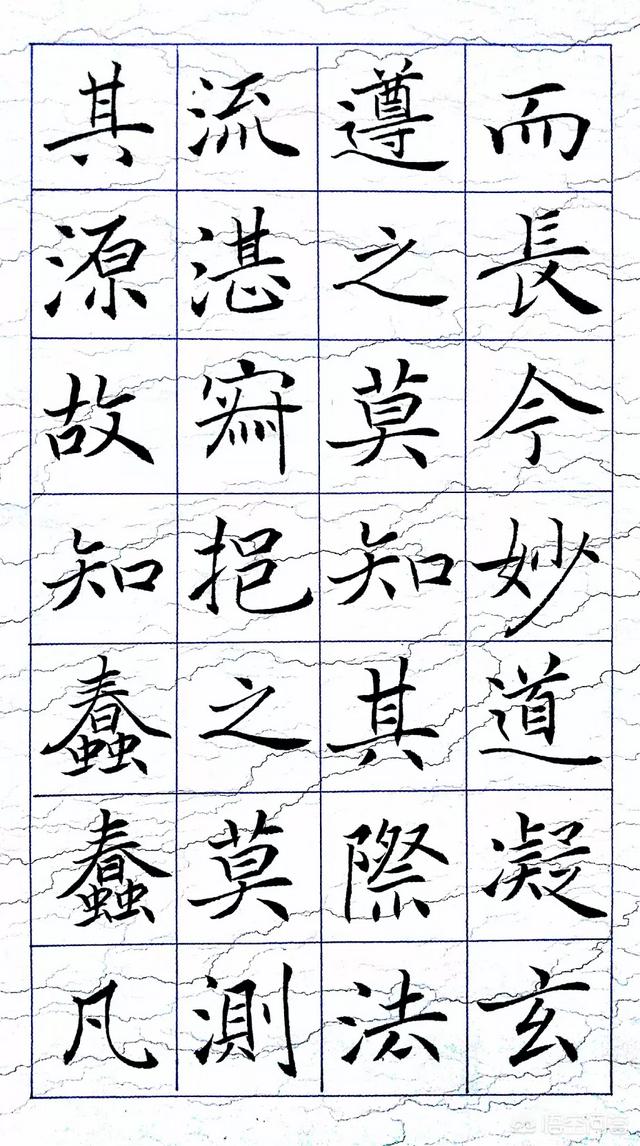 而長今妙道凝玄
遵之莫知其際法
流湛寂挹之莫測
其源故知蠢蠢凡